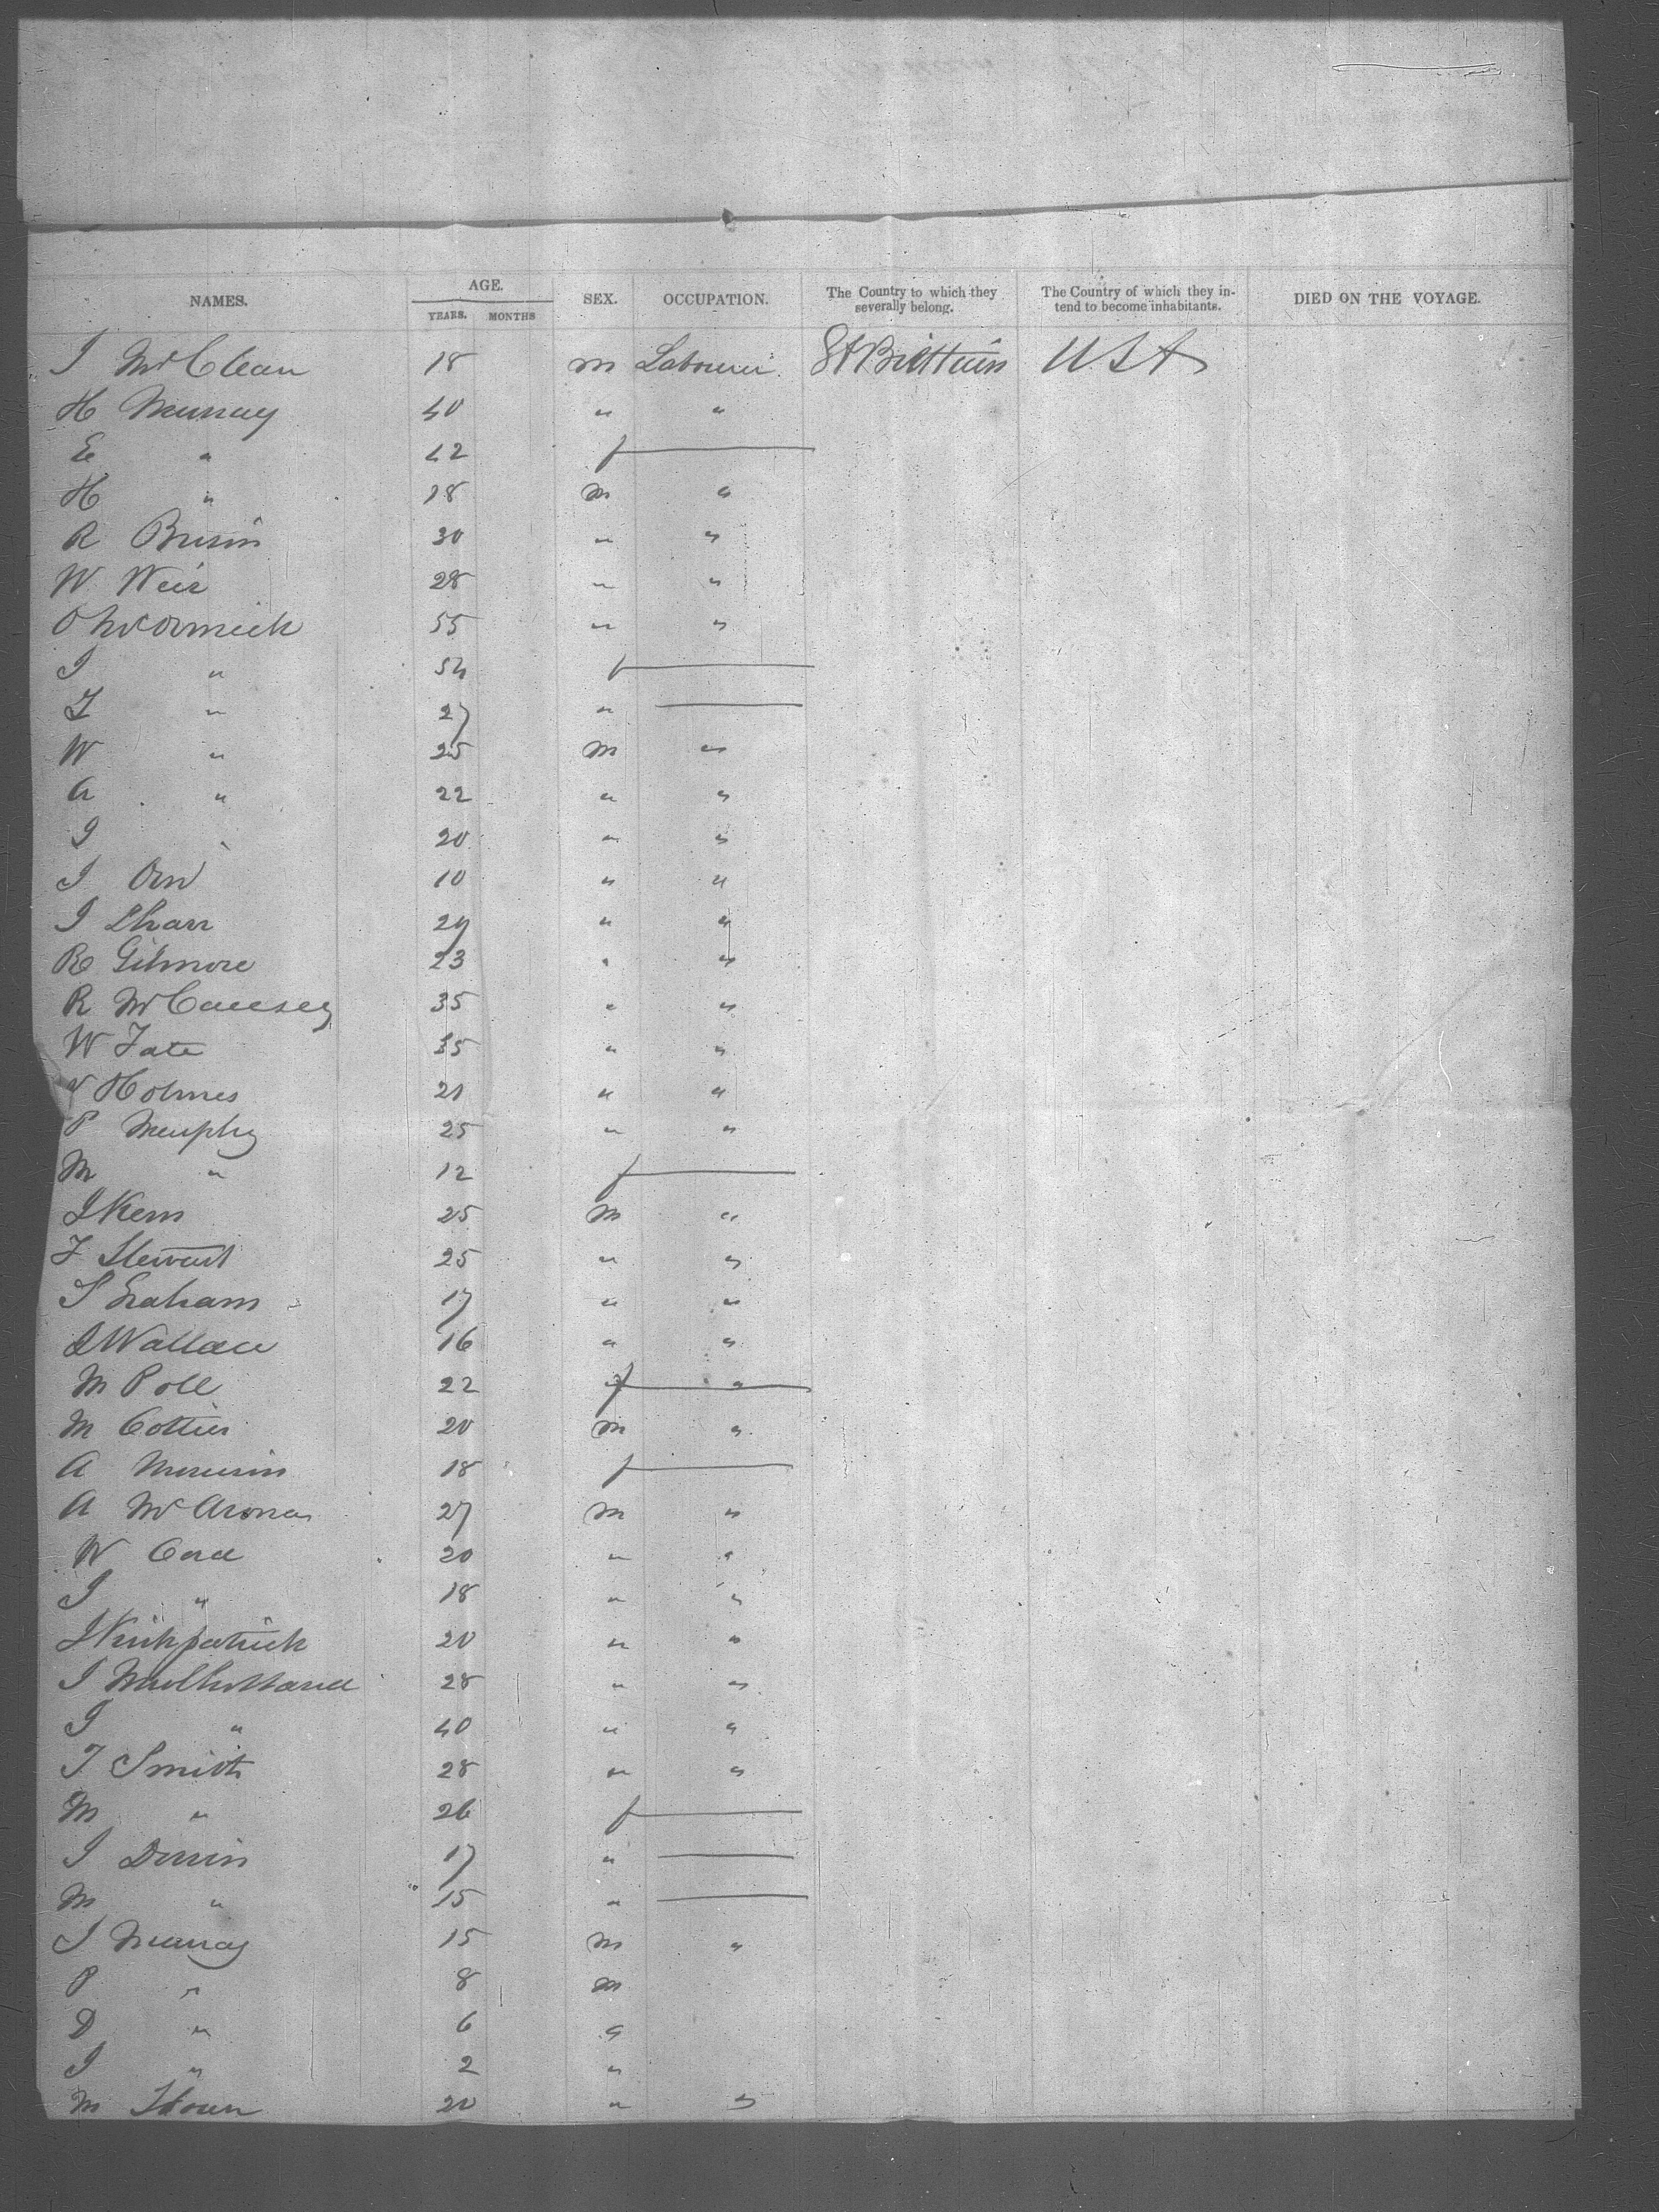 NAMES. AGE. SEX. OCCUPATION. The Country to which they severally belong. The Country of which they intend to become inhabitants. DIED ON THE VOYAGE.
YEARS. MONTHS
J McClean 18 m Labourer Gt Brittain USA
H Murray 40 " "
E " 42 f —
H " 18 m "
R 30 " "
W Weir 28 " "
O McCormick 55 " "
J " 54 f —
" 27 " —
W " 25 m "
A " 22 " "
J " 20 " "
J Orr 10 " "
J " "
R Gilmore 23 " "
R McCausey 35 " "
W Tate 35 " "
Holmes 21 " "
P Murphy 25 " "
M " 12 f —
J Kerr 25 m "
T Stewart 25 " "
S Graham 17 " "
J Wallace 16 " "
M Poll 22 f —
M 20 m "
A 18 f —
A 27 m "
W 20 " "
J " 18 " "
J Kirkpatrick 20 " "
J Mulholland 28 " "
J " 40 " "
T Smith 28 " "
M " 26 f —
J 17 " —
M " 15 " —
J Murray 15 m "
P " 8 m
D " 6 "
J " 2 "
M 20 " "